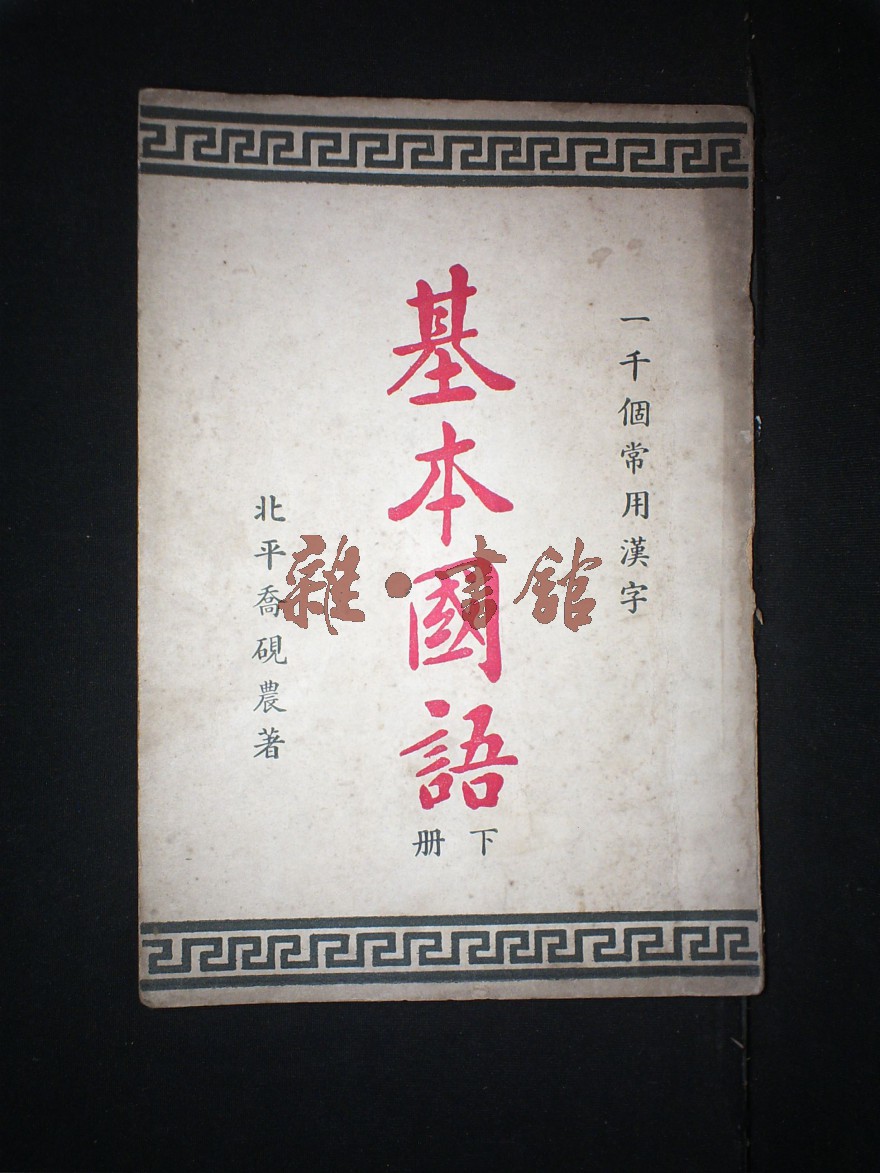 一千個常用漢字
基本國語
下册
北平喬硯農著
雜·書舘